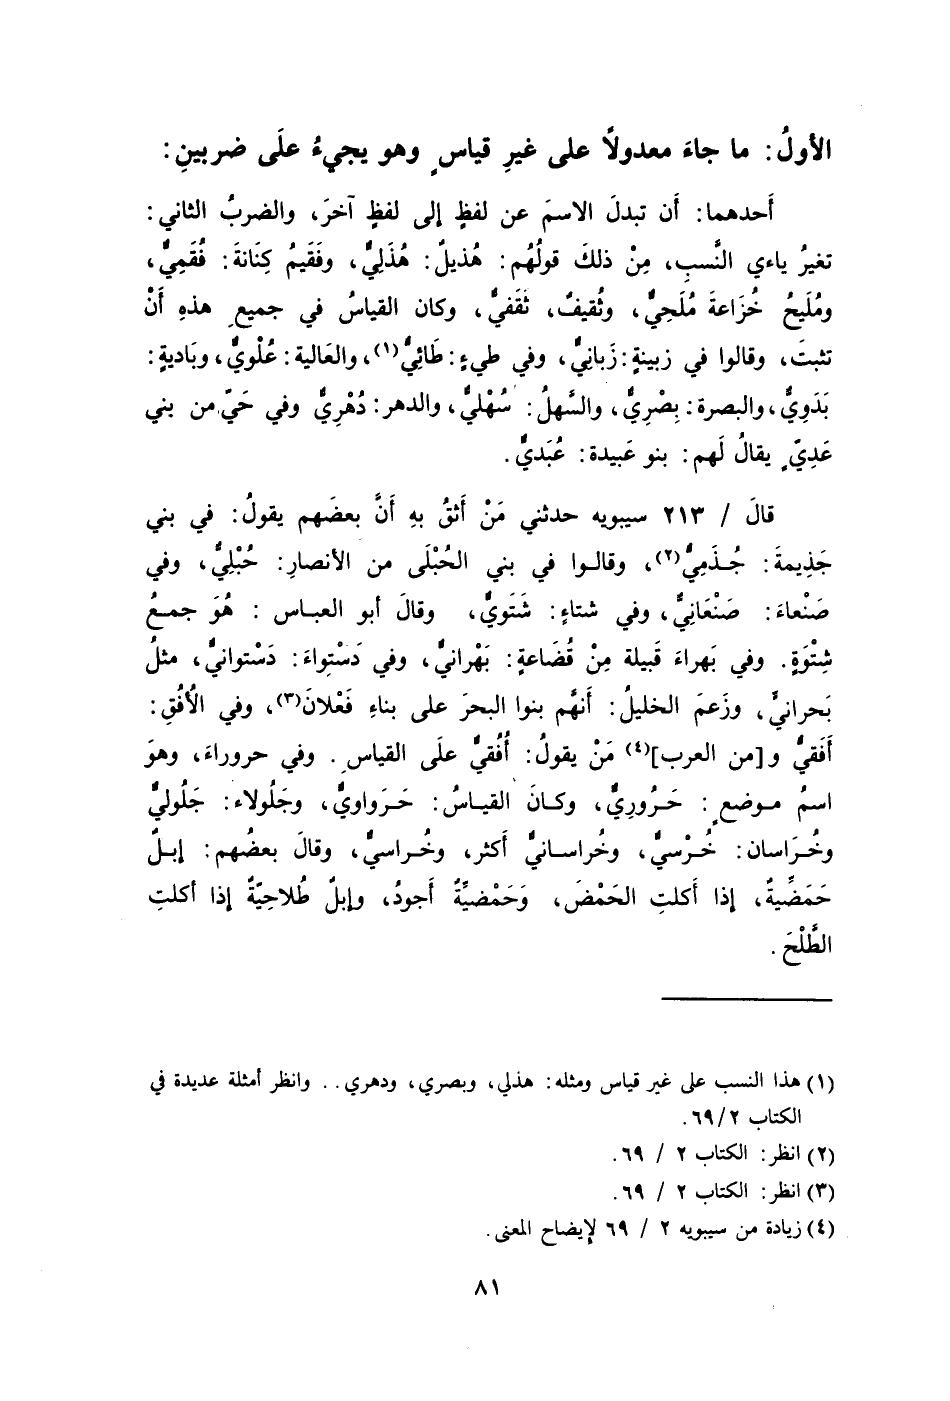 الأولُ: ما جاءَ معدولاً على غيرِ قياسٍ وهو يجيءُ علَى ضربينِ:
أَحدهما: أَن تبدلَ الاسمَ عن لفظٍ إلى لفظٍ آخرَ، والضربُ الثاني:
تغيرُ ياءي النَّسبِ، مِنْ ذلكَ قولُهُم: هُذيلٌ: هُذَليٌّ، وفَقَيمُ كِنَانةَ: فُقَمِيٌّ،
ومُلَيحُ خُزَاعةَ مُلَحِيٌّ، وثُقيفٌ، ثُقَفيٌّ، وكان القياسُ في جميعِ هذهِ أَنْ
تثبتَ، وقالوا في زبينةٍ: زَبانِيٌّ، وفي طيءٍ: طَائِيٌّ(١)، والعَالية: عُلْويٌّ، وبَاديةٍ:
بَدَوِيٌّ، والبصرة: بِصْرِيٌّ، والسَّهلُ: سُهْليٌّ، والدهر: دُهْرِيٌّ وفي حَيّ من بني
عَدِيّ يقالُ لَهم: بنو عَبيدة: عُبَديٌّ.
قالَ / ٢١٣ سيبويه حدثني مَنْ أَثقُ بهِ أَنَّ بعضَهم يقولُ: في بني
جَذِيمةَ: جُـذَمِيٌّ(٢)، وقالـوا في بني الحُبْلَى من الأنصارِ: حُبْلِيٌّ، وفي
صَنْعاءَ: صَنْعَانِيٌّ، وفي شتاءٍ: شَتَويٌّ، وقالَ أبو العبـاس : هُوَ جمـعُ
شِتْوَةٍ. وفي بَهراءَ قَبيلة مِنْ قُضَاعةٍ: بَهْرانيٌّ، وفي دَسْتِواءَ: دَسْتوانيٌّ، مثلُ
بَحرانيٍّ، وزَعمَ الخليلُ: أَنهُم بنوا البحرَ على بناءِ فَعْلانَ(٣)، وفي الأُفُقِ:
أَفَقيٌّ و[من العرب](٤) مَنْ يقولُ: أُفُقيٌّ علَى القياسِ. وفي حروراءَ، وهوَ
اسمُ مـوضعٍ: حَـرُوريٌّ، وكـانَ القياسُ: حَـرَواويٌّ، وجَلُولاء: جَلُوليٌّ
وخُـرَاسان: خُـرْسيٌّ، وخُراسـانيٌّ أَكثر، وخُـراسيٌّ، وقالَ بعضُهم: إبـلٌ
حَمَضِّيةٌ، إذا أَكلتِ الحَمْضَ، وَحَمْضِيَّةٌ أَجودُ، وإبلٌ طُلاحِيّةٌ إذا أكلتِ
الطَّلْحَ.
(١) هذا النسب على غير قياس ومثله: هذلي، وبصري، ودهري.. وانظر أمثلة عديدة في
الكتاب ٢/٦٩.
(٢) انظر: الكتاب ٢ / ٦٩.
(٣) انظر: الكتاب ٢ / ٦٩.
(٤) زيادة من سيبويه ٢ / ٦٩ لإيضاح المعنى.
٨١